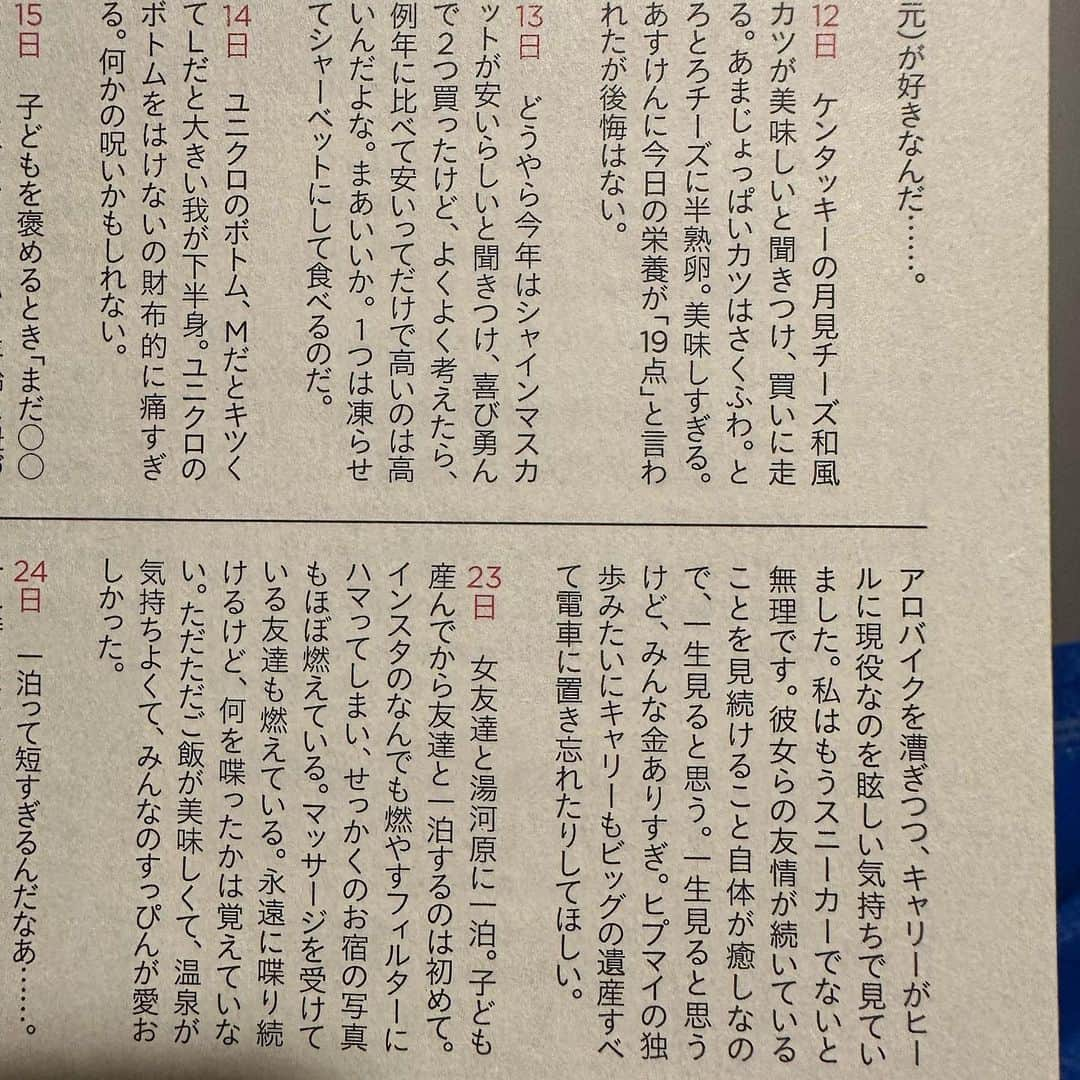 元)が好きなんだ……。
12日　ケンタッキーの月見チーズ和風
カツが美味しいと聞きつけ、買いに走
る。あまじょっぱいカツはさくふわ。と
ろとろチーズに半熟卵。美味しすぎる。
あすけんに今日の栄養が「19点」と言わ
れたが後悔はない。
13日　どうやら今年はシャインマスカ
ットが安いらしいと聞きつけ、喜び勇ん
で2つ買ったけど、よくよく考えたら、
例年に比べて安いってだけで高いのは高
いんだよな。まあいいか。1つは凍らせ
てシャーベットにして食べるのだ。
14日　ユニクロのボトム、Mだとキツく
てLだと大きい我が下半身。ユニクロの
ボトムをはけないの財布的に痛すぎ
る。何かの呪いかもしれない。
15日　子どもを褒めるとき「まだ○○
アロバイクを漕ぎつつ、キャリーがヒー
ルに現役なのを眩しい気持ちで見てい
ました。私はもうスニーカーでないと
無理です。彼女らの友情が続いている
ことを見続けること自体が癒しなの
で、一生見ると思う。一生見ると思う
けど、みんな金ありすぎ。ヒプマイの独
歩みたいにキャリーもビッグの遺産すべ
て電車に置き忘れたりしてほしい。
23日　女友達と湯河原に一泊。子ども
産んでから友達と一泊するのは初めて。
インスタのなんでも燃やすフィルターに
ハマってしまい、せっかくのお宿の写真
もほぼ燃えている。マッサージを受けて
いる友達も燃えている。永遠に喋り続
けるけど、何を喋ったかは覚えていな
い。ただただご飯が美味しくて、温泉が
気持ちよくて、みんなのすっぴんが愛お
しかった。
24日　一泊って短すぎるんだなあ……。